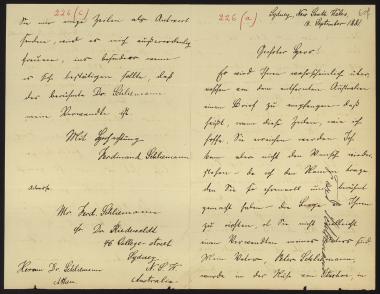 226 (c)
Sie mir einige Zeilen als Antwort
senden, und es mich außerordentlich
freuen, ins besondere wenn
es sich bestätigen sollte, daß
der berühmte Dr. Schliemann
mein Verwandter ist.
Mit Hochachtung
Ferdinand Schliemann
Adresse.
Mr Ferd. Schliemann
Dr Riedersaldt
46 College-street
Sydney
N. S. W.
Australia.
Herrn Dr. Schliemann
Athen
226 (a)
Sydney, New South Wales,
September 1881
Geehrter Herr!
Es wird Ihnen wahrscheinlich über-
raschen von dem entfernten Australien
einen Brief zu empfangen, daß
heißt, wenn diese Zeilen, wie ich
hoffe, Sie erreichen werden. Ich
kann aber nicht dem Wunsche wieder-
stehen, da ich den Namen trage,
den Sie so ehrenvoll und berühmt
gemacht haben, die Frage an Ihnen
zu richten, ob Sie nicht vielleicht
ein Verwandter meines Vaters sind
Mein Vater, Schliemann,
wurde in der Nähe von